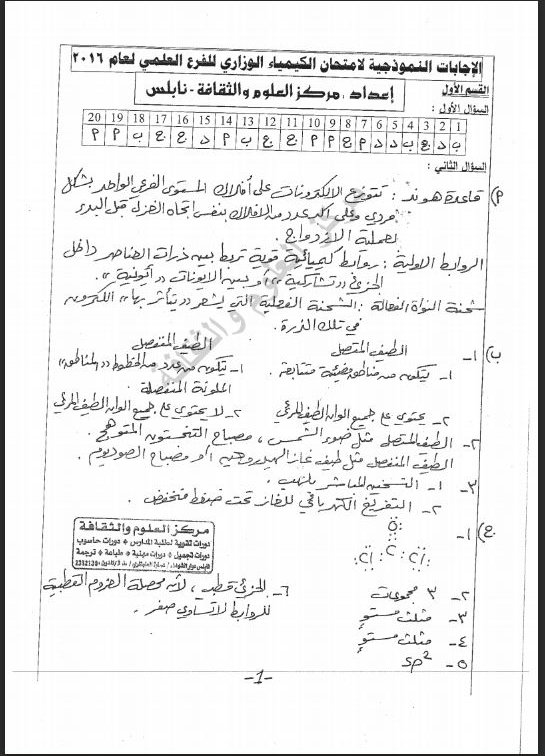 الإجابات النموذجية لامتحان الكيمياء الوزاري للفرع العلمي لعام ٢٠١٦
القسم الأول
إعداد : مركز العلوم والثقافة - نابلس
السؤال الأول :
1 2 3 4 5 6 7 8 9 10 11 12 13 14 15 16 17 18 19 20
السؤال الثاني :
أ) قاعدة هوند : تتوزع الالكترونات على أفلاك المستوى الفرعي الواحد بشكل
فردي وعلى اكبر عدد من الافلاك بنفس اتجاه الغزل قبل البدء
لعملية الازدواج .
الروابط الاولية : روابط كيميائية قوية تربط بين ذرات العناصر داخل
الجزيء "تشاركية" أو بين الايونات "أيونية" .
شحنة النواة الفعالة : الشحنة الفعلية التي يشعر "يتأثر بها" الكترون
في تلك الذرة .
ب) ١- الطيف المتصل الطيف المنفصل
١- يتكون من مناطق مضيئة متتابعة . ١- يتكون من عدد من الخطوط "المناطق"
الملونة المنفصلة
٢- يحتوي على جميع الوان الطيف المرئي ٢- لا يحتوي على جميع الوان الطيف المرئي
٢- الطيف المتصل مثل ضوء الشمس ، مصباح التنغستون المتوهج .
الطيف المنفصل مثل طيف غاز الهيدروجين أو مصباح الصوديوم .
٣- ١- التسخين المباشر باللهب .
٢- التفريغ الكهربائي للغاز تحت ضغط منخفض .
مركز العلوم والثقافة
دورات تقوية لطلبة المدارس * دورات حاسوب
دورات تجميل * دورات مهنية * طباعة * ترجمة
ج) ١- :O:
:Cl: C :Cl:
٢- ٣ مجموعات
٣- مثلث مستوٍ
٤- مثلث مستوٍ
٥- sp²
٦- الجزيء قطبي ، لأن محصلة العزوم القطبية
للروابط لا تساوي صفر .
-1-
مركز العلوم والثقافة